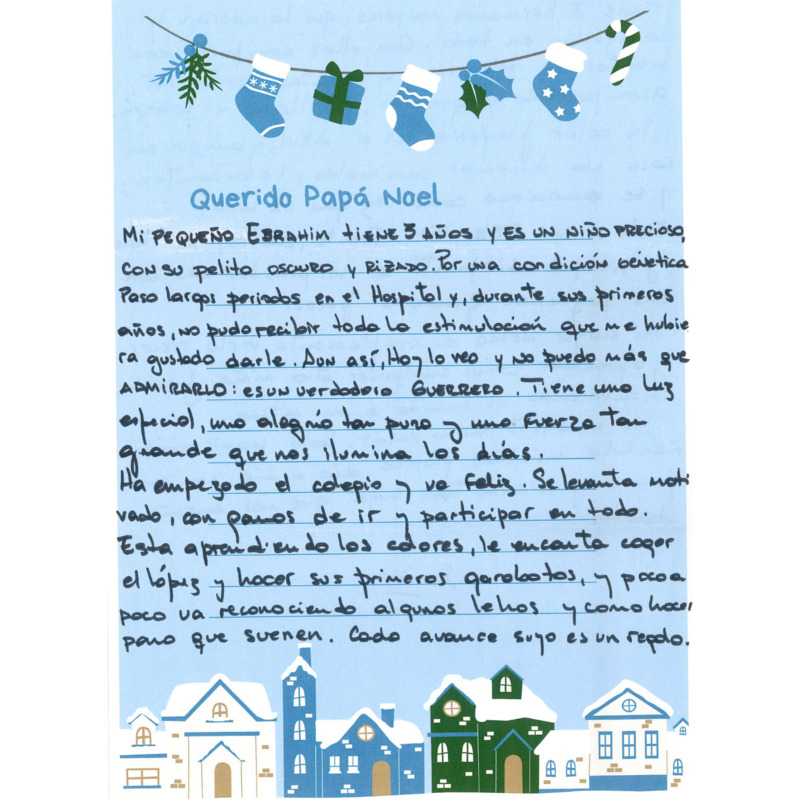 Querido Papá Noel
Mi PEQUEÑO EBRAHIM tIENE 5 AÑOS Y ES UN NIÑO PRECIOSO,
CON SU pelito OSCURO y RIZADO. Por una condición Genética
Paso largos periodos en el Hospital y, durante sus primeros
años, no pudo recibir toda la estimulación que me hubie
ra gustado darle. Aun así, Hoy lo veo y no puedo más que
ADMIRARLO: es un verdadero GUERRERO. Tiene una Luz
especial, una alegría tan pura y una Fuerza tan
grande que nos ilumina los días.
Ha empezado el colegio y va Feliz. Se levanta moti
vado, con ganas de ir y participar en todo.
Esta aprendiendo los colores, le encanta coger
el lápiz y hacer sus primeros garabatos, y poco a
poco va reconociendo algunas letras y como hacer
para que suenen. Cada avance suyo es un regalo.